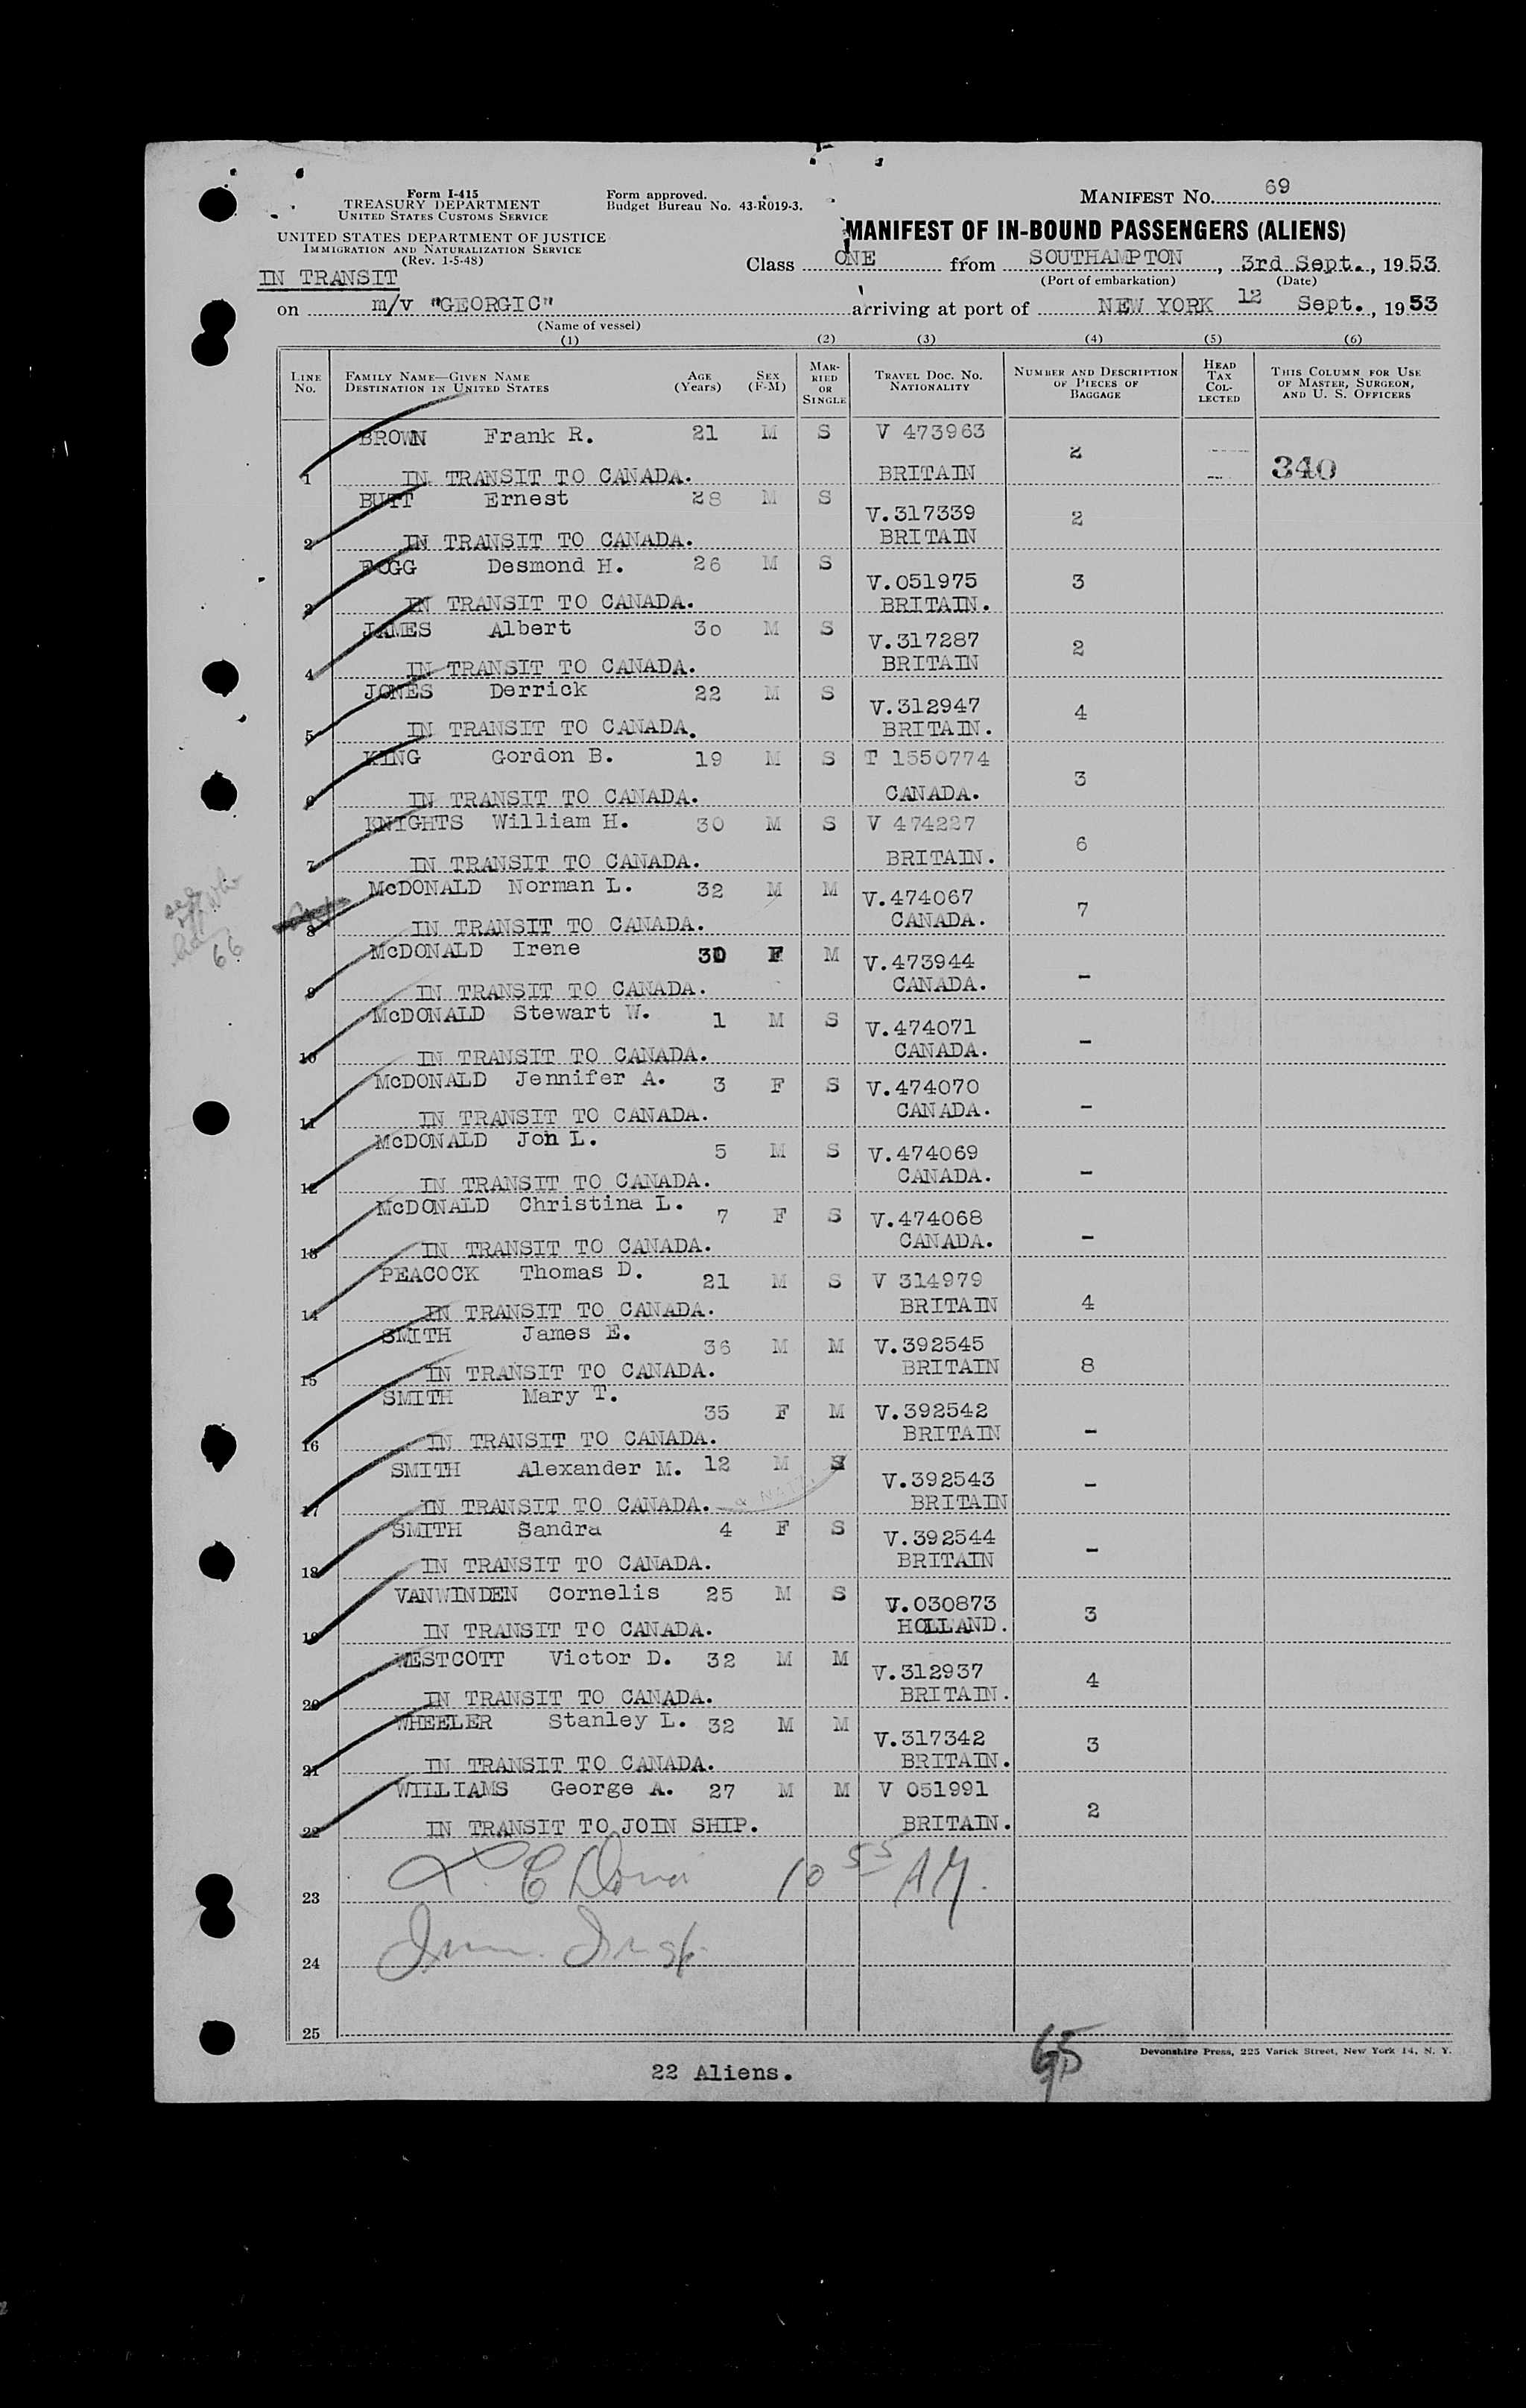 Form I-415
TREASURY DEPARTMENT
UNITED STATES CUSTOMS SERVICE
UNITED STATES DEPARTMENT OF JUSTICE
IMMIGRATION AND NATURALIZATION SERVICE
(Rev. 1-5-48)
Form approved.
Budget Bureau No. 43-R019-3.
MANIFEST NO. 69
MANIFEST OF IN-BOUND PASSENGERS (ALIENS)
Class ONE from SOUTHAMPTON, 3rd Sept., 1953
(Port of embarkation) (Date)
IN TRANSIT
on m/v "GEORGIC" arriving at port of NEW YORK 12 Sept., 1953
(Name of vessel)
(1) (2) (3) (4) (5) (6)
LINE NO.
FAMILY NAME—GIVEN NAME
DESTINATION IN UNITED STATES
AGE (YEARS)
SEX (F-M)
MARRIED OR SINGLE
TRAVEL DOC. NO. NATIONALITY
NUMBER AND DESCRIPTION OF PIECES OF BAGGAGE
HEAD TAX COLLECTED
THIS COLUMN FOR USE OF MASTER, SURGEON, AND U. S. OFFICERS
BROWN Frank R. 21 M S V 473963 2
1 IN TRANSIT TO CANADA. BRITAIN 340
BUTT Ernest 28 M S V.317339 2
2 IN TRANSIT TO CANADA. BRITAIN
FOGG Desmond H. 26 M S V.051975 3
3 IN TRANSIT TO CANADA. BRITAIN.
JAMES Albert 30 M S V.317287 2
4 IN TRANSIT TO CANADA. BRITAIN
JONES Derrick 22 M S V.312947 4
5 IN TRANSIT TO CANADA. BRITAIN.
KING Gordon B. 19 M S T 1550774 3
6 IN TRANSIT TO CANADA. CANADA.
KNIGHTS William H. 30 M S V 474227 6
7 IN TRANSIT TO CANADA. BRITAIN.
McDONALD Norman L. 32 M M V.474067 7
8 IN TRANSIT TO CANADA. CANADA.
66
McDONALD Irene 30 F M V.473944 -
9 IN TRANSIT TO CANADA. CANADA.
McDONALD Stewart W. 1 M S V.474071 -
10 IN TRANSIT TO CANADA. CANADA.
McDONALD Jennifer A. 3 F S V.474070 -
11 IN TRANSIT TO CANADA. CANADA.
McDONALD Jon L. 5 M S V.474069 -
12 IN TRANSIT TO CANADA. CANADA.
McDONALD Christina L. 7 F S V.474068 -
13 IN TRANSIT TO CANADA. CANADA.
PEACOCK Thomas D. 21 M S V 314979 4
14 IN TRANSIT TO CANADA. BRITAIN
SMITH James E. 36 M M V.392545 8
15 IN TRANSIT TO CANADA. BRITAIN
SMITH Mary T. 35 F M V.392542 -
16 IN TRANSIT TO CANADA. BRITAIN
SMITH Alexander M. 12 M S V.392543 -
17 IN TRANSIT TO CANADA. BRITAIN
SMITH Sandra 4 F S V.392544 -
18 IN TRANSIT TO CANADA. BRITAIN
VANWINDEN Cornelis 25 M S V.030873 3
19 IN TRANSIT TO CANADA. HOLLAND.
WESTCOTT Victor D. 32 M M V.312937 4
20 IN TRANSIT TO CANADA. BRITAIN.
WHEELER Stanley L. 32 M M V.317342 3
21 IN TRANSIT TO CANADA. BRITAIN.
WILLIAMS George A. 27 M M V 051991 2
22 IN TRANSIT TO JOIN SHIP. BRITAIN.
23 10 55 AM.
24 Imm. Insp.
25
65
Devonshire Press, 225 Varick Street, New York 14, N. Y.
22 Aliens.